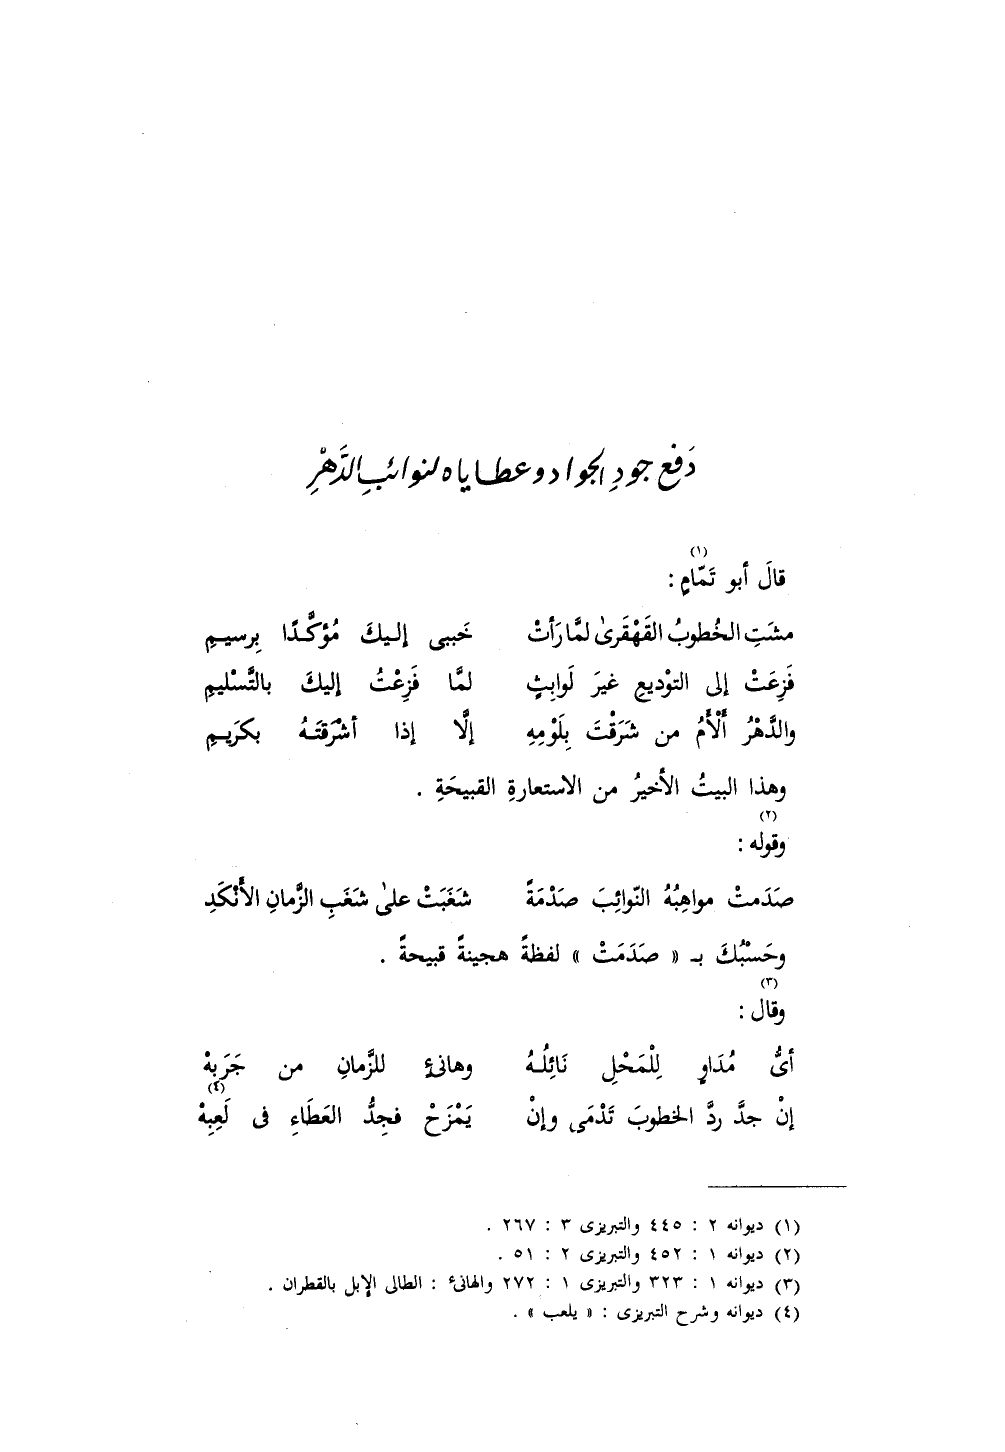 دَفع جودِ الجواد وعطاياه لنوائبِ الدَّهْرِ
(١)
قالَ أبو تَمّامٍ :
مشَتِ الخُطوبُ القَهْقَرىٰ لمَّا رَأتْ خَببى إليكَ مُؤكَّدًا بِرسيمِ
فَزِعَتْ إلى التوْديعِ غيرَ لَوابِثٍ لمَّا فَزِعْتُ إليكَ بالتَّسْليمِ
والدَّهْرُ أَلْأَمُ من شَرَقْتَ بِلَوْمِهِ إلَّا إذا أشْرَقتَهُ بكَرَيمِ
وهذا البيتُ الأخيرُ من الاستعارةِ القبيحَةِ .
(٢)
وقوله :
صَدَمتْ مواهِبُهُ النّوائِبَ صَدْمَةً شَغَبَتْ علىٰ شَغَبِ الزَّمانِ الأَنْكَدِ
وحَسْبُكَ بـ « صَدَمَتْ » لفظةً هجينةً قبيحةً .
(٣)
وقال :
أىُّ مُدَاوٍ لِلْمَحْلِ نَائِلُهُ وهانئٍ للزَّمانِ من جَرَبِهْ
(٤)
إنْ جدَّ ردَّ الخطوبَ تَدْمَى وإنْ يَمْزَحْ فجِدُّ العَطَاءِ فى لَعِبِهْ
(١) ديوانه ٢ : ٤٤٥ والتبريزى ٣ : ٢٦٧ .
(٢) ديوانه ١ : ٤٥٢ والتبريزى ٢ : ٥١ .
(٣) ديوانه ١ : ٣٢٣ والتبريزى ١ : ٢٧٢ والهانئ : الطالى الإبل بالقطران .
(٤) ديوانه وشرح التبريزى : « يلعب » .